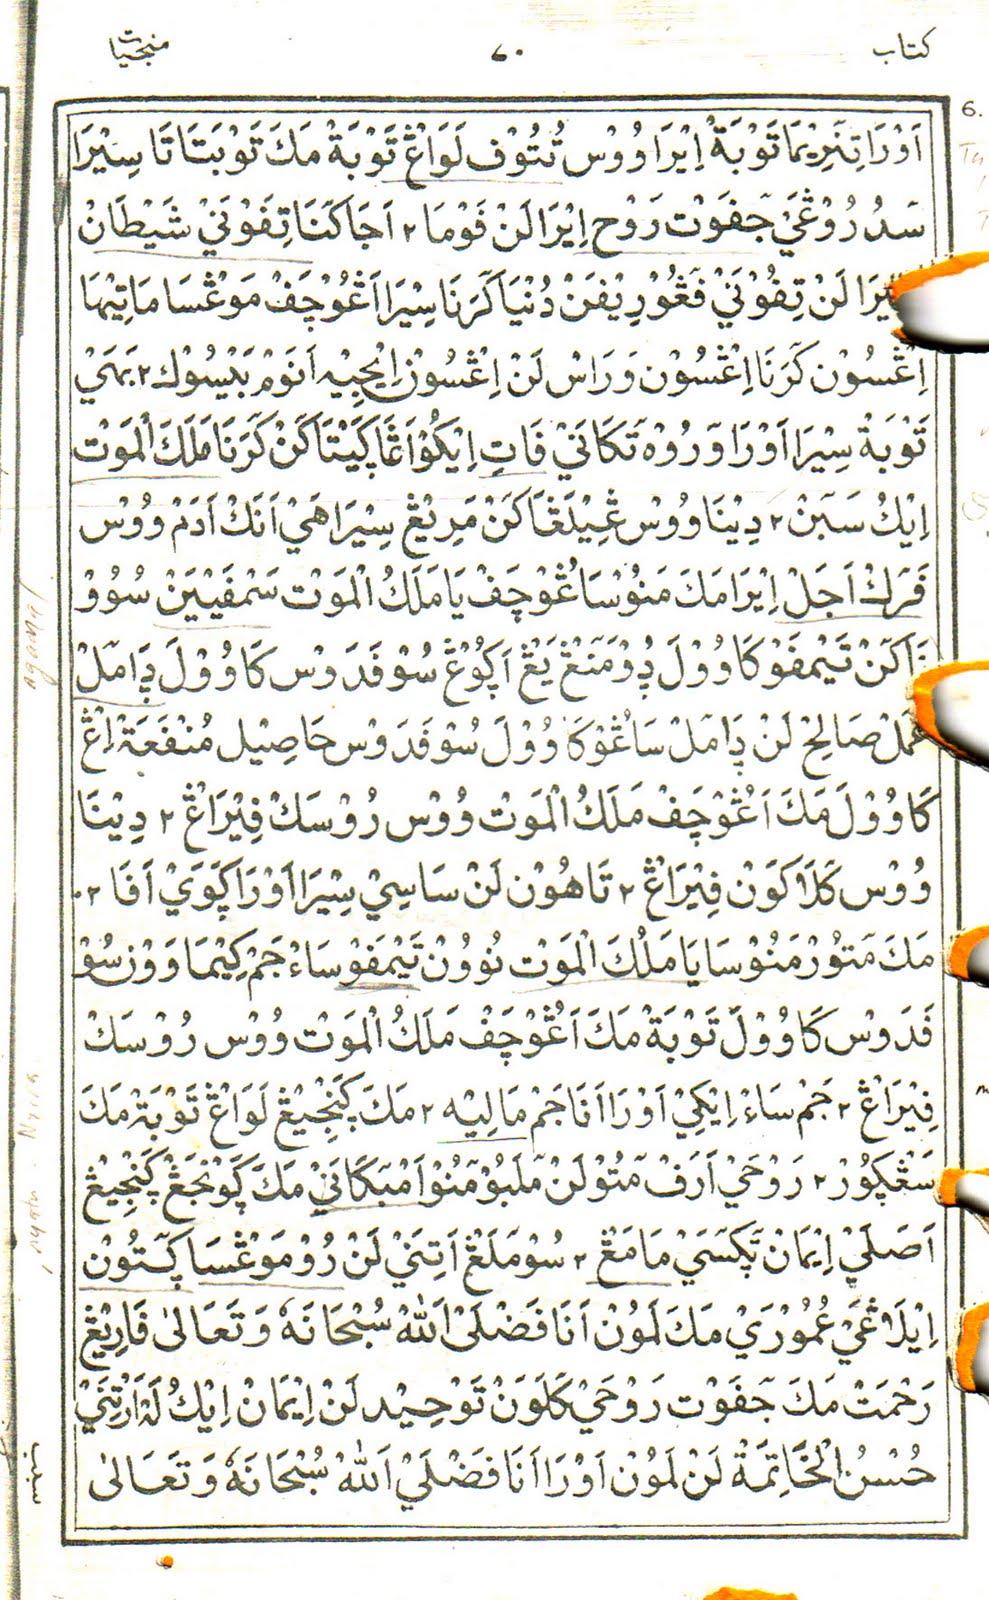 كتاب ٧٠ منجيات
اَوْرَا دِتَرِيْمَا تَوْبَةْ اِيْرَا وُوْسْ تُتُوْفْ لَوَاڠْ تَوْبَةْ مَكَ تَوْبَتَا تَا سِيْرَا
سَدُرُوْڠَيْ جَفَوْتْ رَوْح اِيْرَا لَنْ فَوْمَا ٢ اَجَا كَنَا تِفَوْنَيْ شَيْطَانْ
لَنْ تِفُوْنَيْ فَڠُوْرِيْفَنْ دُنْيَا كَرَنَا سِيْرَا اَڠُوْچَفْ مَوْڠْسَا مَاتِيْهَا
اِڠْسُوْن كَرَنَا اِڠْسُوْن وَرَاسْ لَنْ اِڠْسُوْن اِيْجِيْه اَنَوْمْ بَيْسُوْك ٢ بَهَيْ
تَوْبَةْ سِيْرَا اَوْرَا وَرُوْه تَكَانَيْ فَاتِ اِيْكُوْ اَڠَاڮَيْتَاكَنْ كَرَنَا مَلَكَ الْمَوْتْ
اِيْكُ سَبَنْ ٢ دِيْنَا وُوْسْ ڠَيْلَڠَاكَنْ مَرِيْڠْ سِيْرَا هَيْ اَنَكْ اَدَمْ وُوْسْ
فَرَكْ اَجَلْ اِيْرَا مَكَ مَنُوْسَا ڠُوْچَفْ يَا مَلَكُ الْمَوْتْ سَمْفَيْيَنْ سُوُوْ
تَيْمْفَوْ كَاوُوْلَ دٍوْمَنَڠْ يَڠْ اَڮُوْڠْ سُوْفَدَوْسْ كَاوُوْلَ دَامَلْ
عَمَلْ صَالِحْ لَنْ دَامَلْ سَاڠُوْ كَاوُوْلَ سُوْفَدَوْسْ حَاصِيْل مُنْفَعَةْ اِڠْ
كَاوُوْلَ مَكَ اَڠُوْچَفْ مَلَكُ الْمَوْتْ وُوْسْ رُوْسَكْ فِيْرَاڠْ ٢ دِيْنَا
وُوْسْ كَلَاكَوْنْ فِيْرَاڠْ ٢ تَاهُوْن لَنْ سَاسِيْ سِيْرَا اَوْرَا ڮَوَيْ اَفَا ٢
مَكَ مَتُوْر مَنُوْسَا يَا مَلَكَ الْمَوْتْ نُوْوُنْ تَيْمْفَوْ سَاءْ جَمْ كِيْمَاوَوْنْ سُوْ
فَدَوْسْ كَاوُوْلَ تَوْبَةْ مَكَ اَڠُوْچَفْ مَلَكُ الْمَوْتْ وُوْسْ رُوْسَكْ
فِيْرَاڠْ ٢ جَمْ سَاءْ اِيْكِيْ اَوْرَا اَنَا جَمْ مَالِيْه ٢ مَكَ كَنْچِيْڠْ لَوَاڠْ تَوْبَةْ مَكَ
سَڠْڮُوْر ٢ رَوْحَيْ اَرَفْ مَتُوْ لَنْ مَلَبُوْ مَنُوْ اَمْبَكَانَيْ مَكَ ڮَوْنْجَڠْ ڮَنْجِيْڠْ
اَصَلَيْ اِيْمَانْ تَڮَسَيْ مَامَڠْ ٢ سُوْمَلَڠْ اَتِنَيْ لَنْ رُوْمَوْڠْسَا ڮَتُوْن
اِيْلَاڠَيْ عُمُوْرَيْ مَكَ لَمُوْن اَنَا فَضْلَيْ اَللّٰهْ سُبْحَانَهُ وَتَعَالٰى فَارِيْڠْ
رَحْمَتْ مَكَ جَفَوْتْ رَوْحَيْ كَلَوَنْ تَوْحِيْد لَنْ اِيْمَانْ اِيْكُ لَهْ اَرْتِنَيْ
حُسْنُ الْخَاتِمَةْ لَنْ لَمُوْن اَوْرَا اَنَا فَضْلَيْ اَللّٰهْ سُبْحَانَهُ وَتَعَالٰى